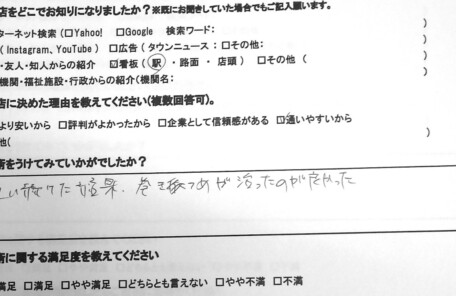 店をどこでお知りになりましたか？※既にお聞きしていた場合でもご記入願います。
ターネット検索(□Yahoo! □Google 検索ワード: )
(Instagram、YouTube) □広告(タウンニュース：□その他:
・友人・知人からの紹介 ☑看板(駅・路面・店頭) □その他( )
機関・福祉施設・行政からの紹介(機関名: )
店に決めた理由を教えてください(複数回答可)。
より安いから □評判がよかったから □企業として信頼感がある ☑通いやすいから
他( )
術をうけてみていかがでしたか？
結果、巻き爪が治ったのが良かった
術に関する満足度を教えてください
満足 □満足 □やや満足 □どちらとも言えない □やや不満 □不満